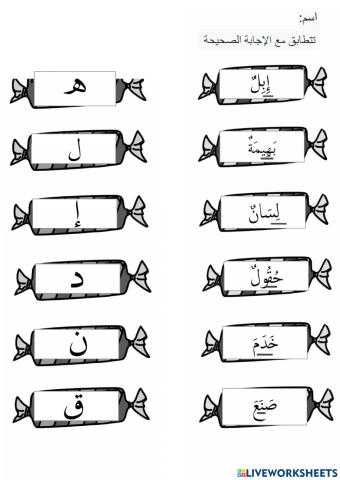 اسم:
تتطابق مع الإجابة الصحيحة
إِبِلٌ
ه
بَهِيمَةٌ
ل
لِسَانٌ
إ
حُقُولٌ
د
خَدَمَ
ن
صَنَعَ
ق
LIVEWORKSHEETS